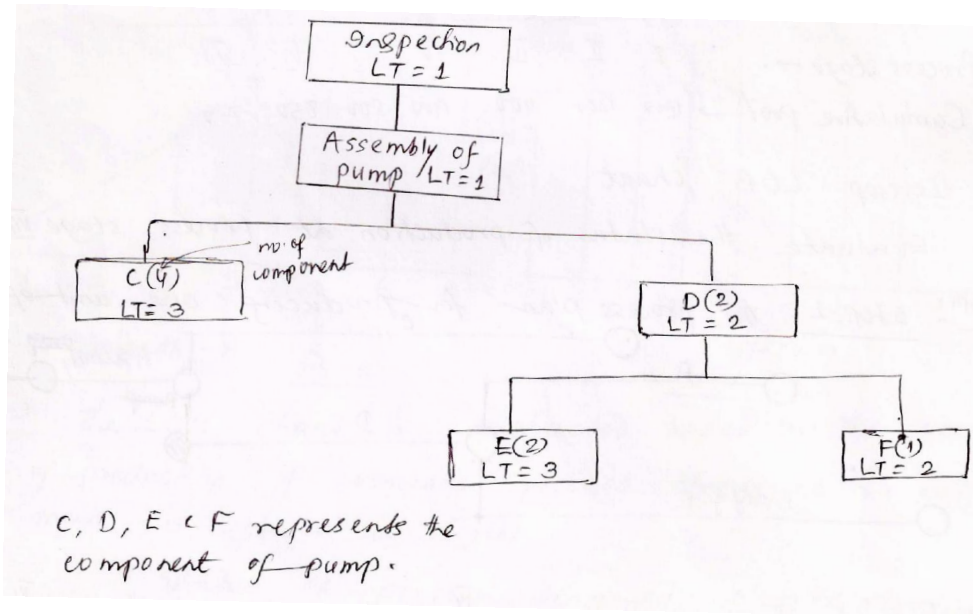 Inspection
LT = 1
Assembly of
pump LT=1
no. of
component
C (4)
LT= 3
D (2)
LT = 2
E(2)
LT = 3
F(1)
LT = 2
C, D, E & F represents the
component of pump.